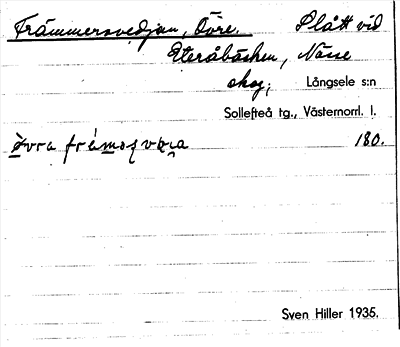 Främmersvedjan, Övre. Slått vid
Eteråbäcken, Nässe
skog, Långsele s:n
Sollefteå tg., Västernorrl. l.
180.
Sven Hiller 1935.